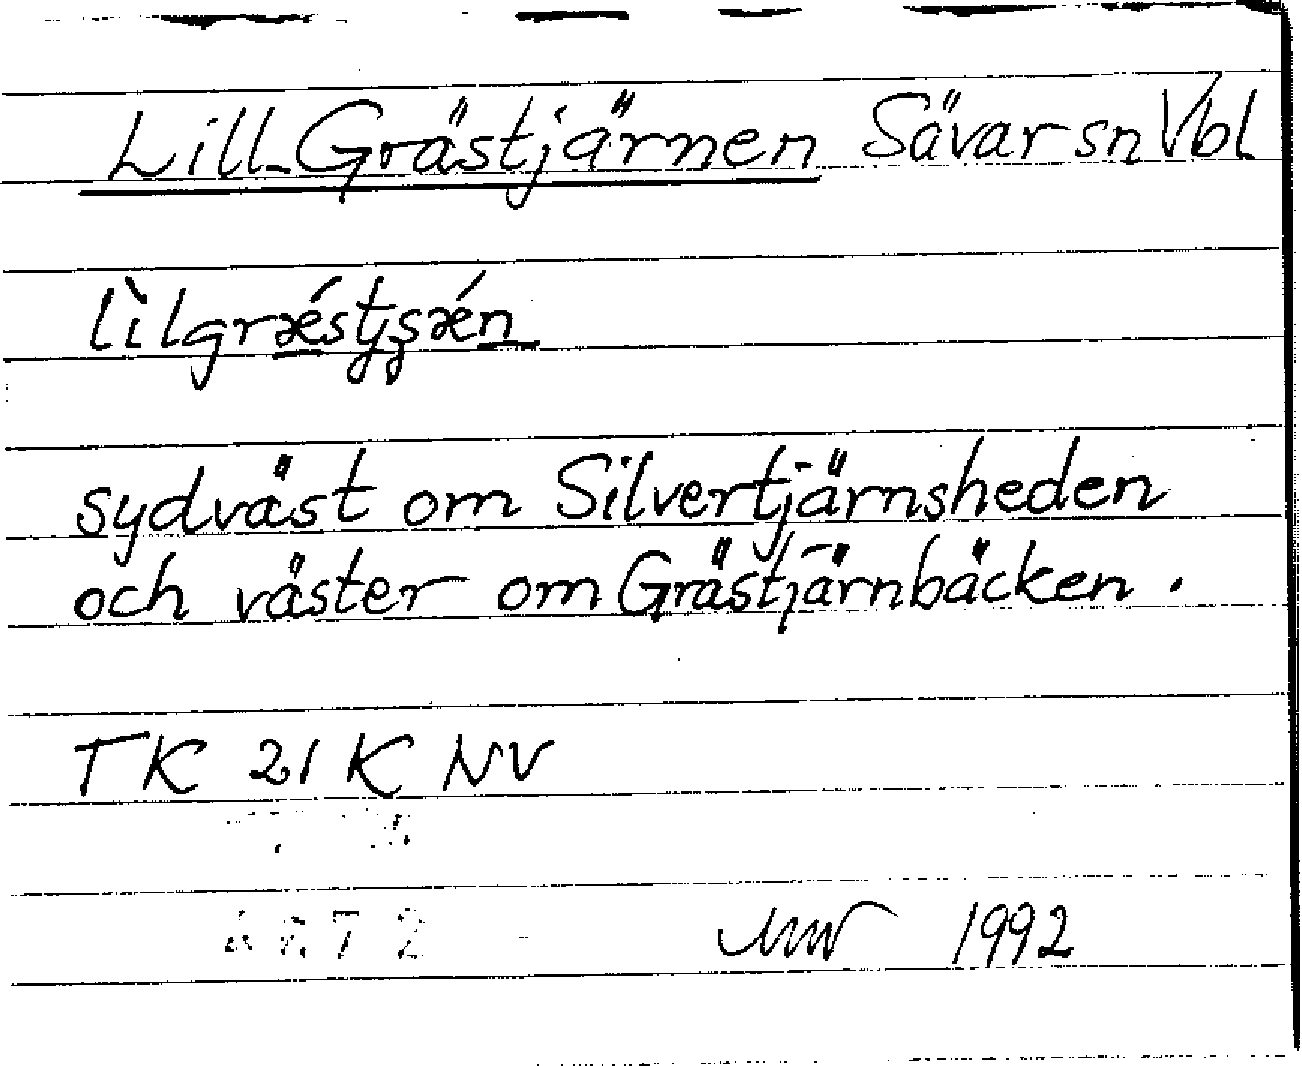 Lill-Grästjärnen Sävar sn Vbl
lìlgrǽstjʂǽn
sydväst om Silvertjärnsheden
och väster om Grästjärnbäcken.
TK 21 K NV
1992